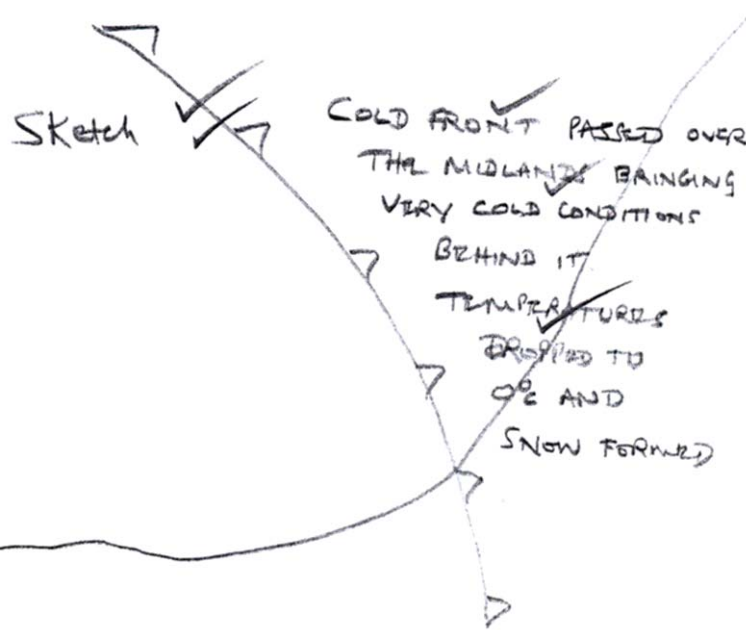 Sketch
COLD FRONT PASSED OVER
THE MIDLANDS BRINGING
VERY COLD CONDITIONS
BEHIND IT
TEMPERATURES
DROPPED TO
0°C AND
SNOW FORMED